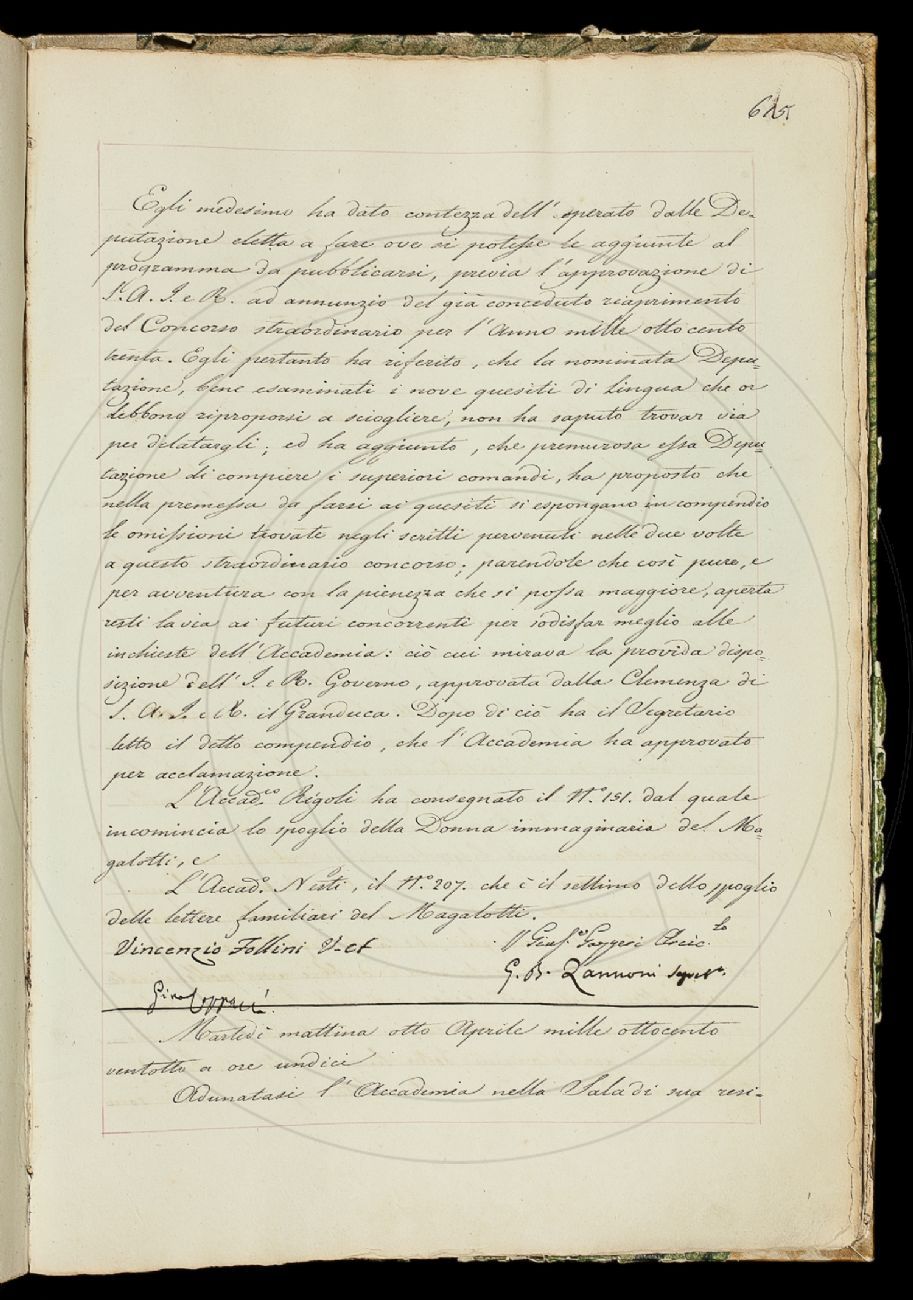 615
Egli medesimo ha dato contezza dell' operato dalle De-
putazione eletta a fare ove si potesse le aggiunte al
programma da pubblicarsi, previa l'approvazione di
S. A. I. e R. ad annunzio del già conceduto riaprimento
del Concorso straordinario per l'Anno mille ottocento
trenta. Egli pertanto ha riferito, che la nominata Depu-
tazione, bene esaminati i nove quesiti di lingua che or
debbono riproporsi a sciogliere, non ha saputo trovar via
per dilatargli; ed ha aggiunto, che premurosa essa Depu-
tazione di compiere i superiori comandi, ha proposto che
nella premessa da farsi ai quesiti si espongano in compendio
le omissioni trovate negli scritti pervenuti nelle due volte
a questo straordinario concorso; parendole che così pure, e
per avventura con la pienezza che si possa maggiore, aperta
resti la via ai futuri concorrenti per sodisfar meglio alle
inchieste dell'Accademia: ciò cui mirava la provida dispo-
sizione dell' I. e R. Governo, approvata dalla Clemenza di
S. A. I. e R. il Granduca. Dopo di ciò ha il Segretario
letto il detto compendio, che l'Accademia ha approvato
per acclamazione.
L'Accad.co Rigoli ha consegnato il N.o 151. dal quale
incomincia lo spoglio della Donna immaginaria del Ma-
galotti, e
L'Accad.o Nesti, il N.o 207. che è il settimo dello spoglio
delle lettere familiari del Magalotti.
Vincenzio Follini V-Ct
G. B. Zannoni Segret.
Martedì mattina otto Aprile mille ottocento
ventotto a ore undici
Adunatasi l'Accademia nella Sala di sua resi-